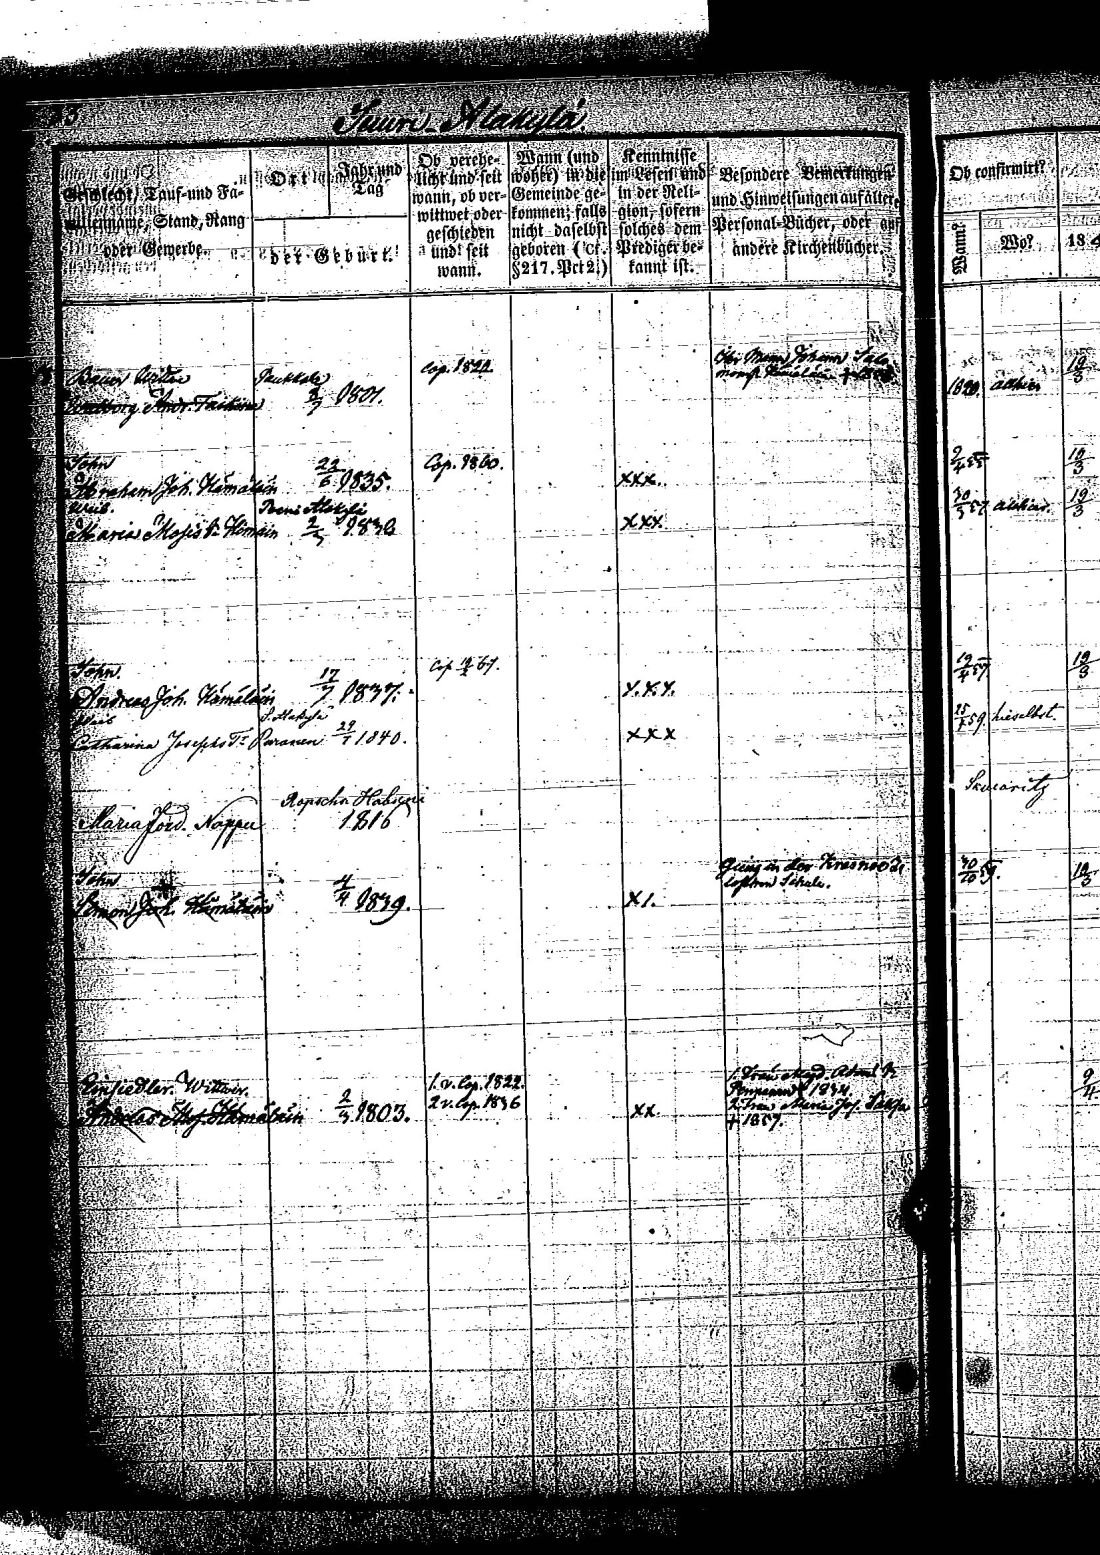 Suuri-Alakylä.
Geschlecht, Tauf- und Fa-
miliennname, Stand, Rang
oder Gewerbe.
Ort
Jahr und
Tag
der Geburt.
Ob verehe-
licht und seit
wann, ob ver-
wittwet oder
geschieden
und seit
wann.
Wann (und
woher) in die
Gemeinde ge-
kommen; falls
nicht daselbst
geboren (cf.
§ 217. Pct 2.)
Kenntnisse
im Lesen und
in der Reli-
gion, sofern
solches dem
Prediger be-
kannt ist.
Besondere Bemerkungen
und Hinweisungen auf ältere
Personal-Bücher, oder auf
andere Kirchenbücher.
Ob confirmirt?
Wann?
Wo?
184
Bauer Wittwe
2/7 1801.
Cop. 1822
Ihr Mann Johann Salo
1820. allhier
19/3
Sohn
Abraham Joh. Hämäläin
22/6 1835.
Cop. 1860.
xxx.
2/4 55
19/3
Weib.
Maria Mosis Tr.
2/7 1836
xxx
30/3 57 allhier.
19/3
Sohn.
Andreas Joh. Hämäläin
17/7 1837.
x.x.x.
19/4 57
19/3
Weib
Catharina Josephs Tr. Puranen
S. Alakylä
29/1 1840.
xxx
25/4 59. hieselbst.
Maria Ferd. Noppu
Ropscha
1816
Skworitz
Sohn
Simon Joh. Hämäläin
4/4 1839.
x1.
Ging in der Krasno Se
loschen Schule.
30/10 59.
19/3
Einsiedler. Wittwer.
Andreas Mos. Hämäläin
2/3 1803.
1. v. Cop. 1822.
2 v. Cop. 1836
xx.
1. Frau Magd.
† 1834
2. Frau Maria Jos.
† 1857.
9/4